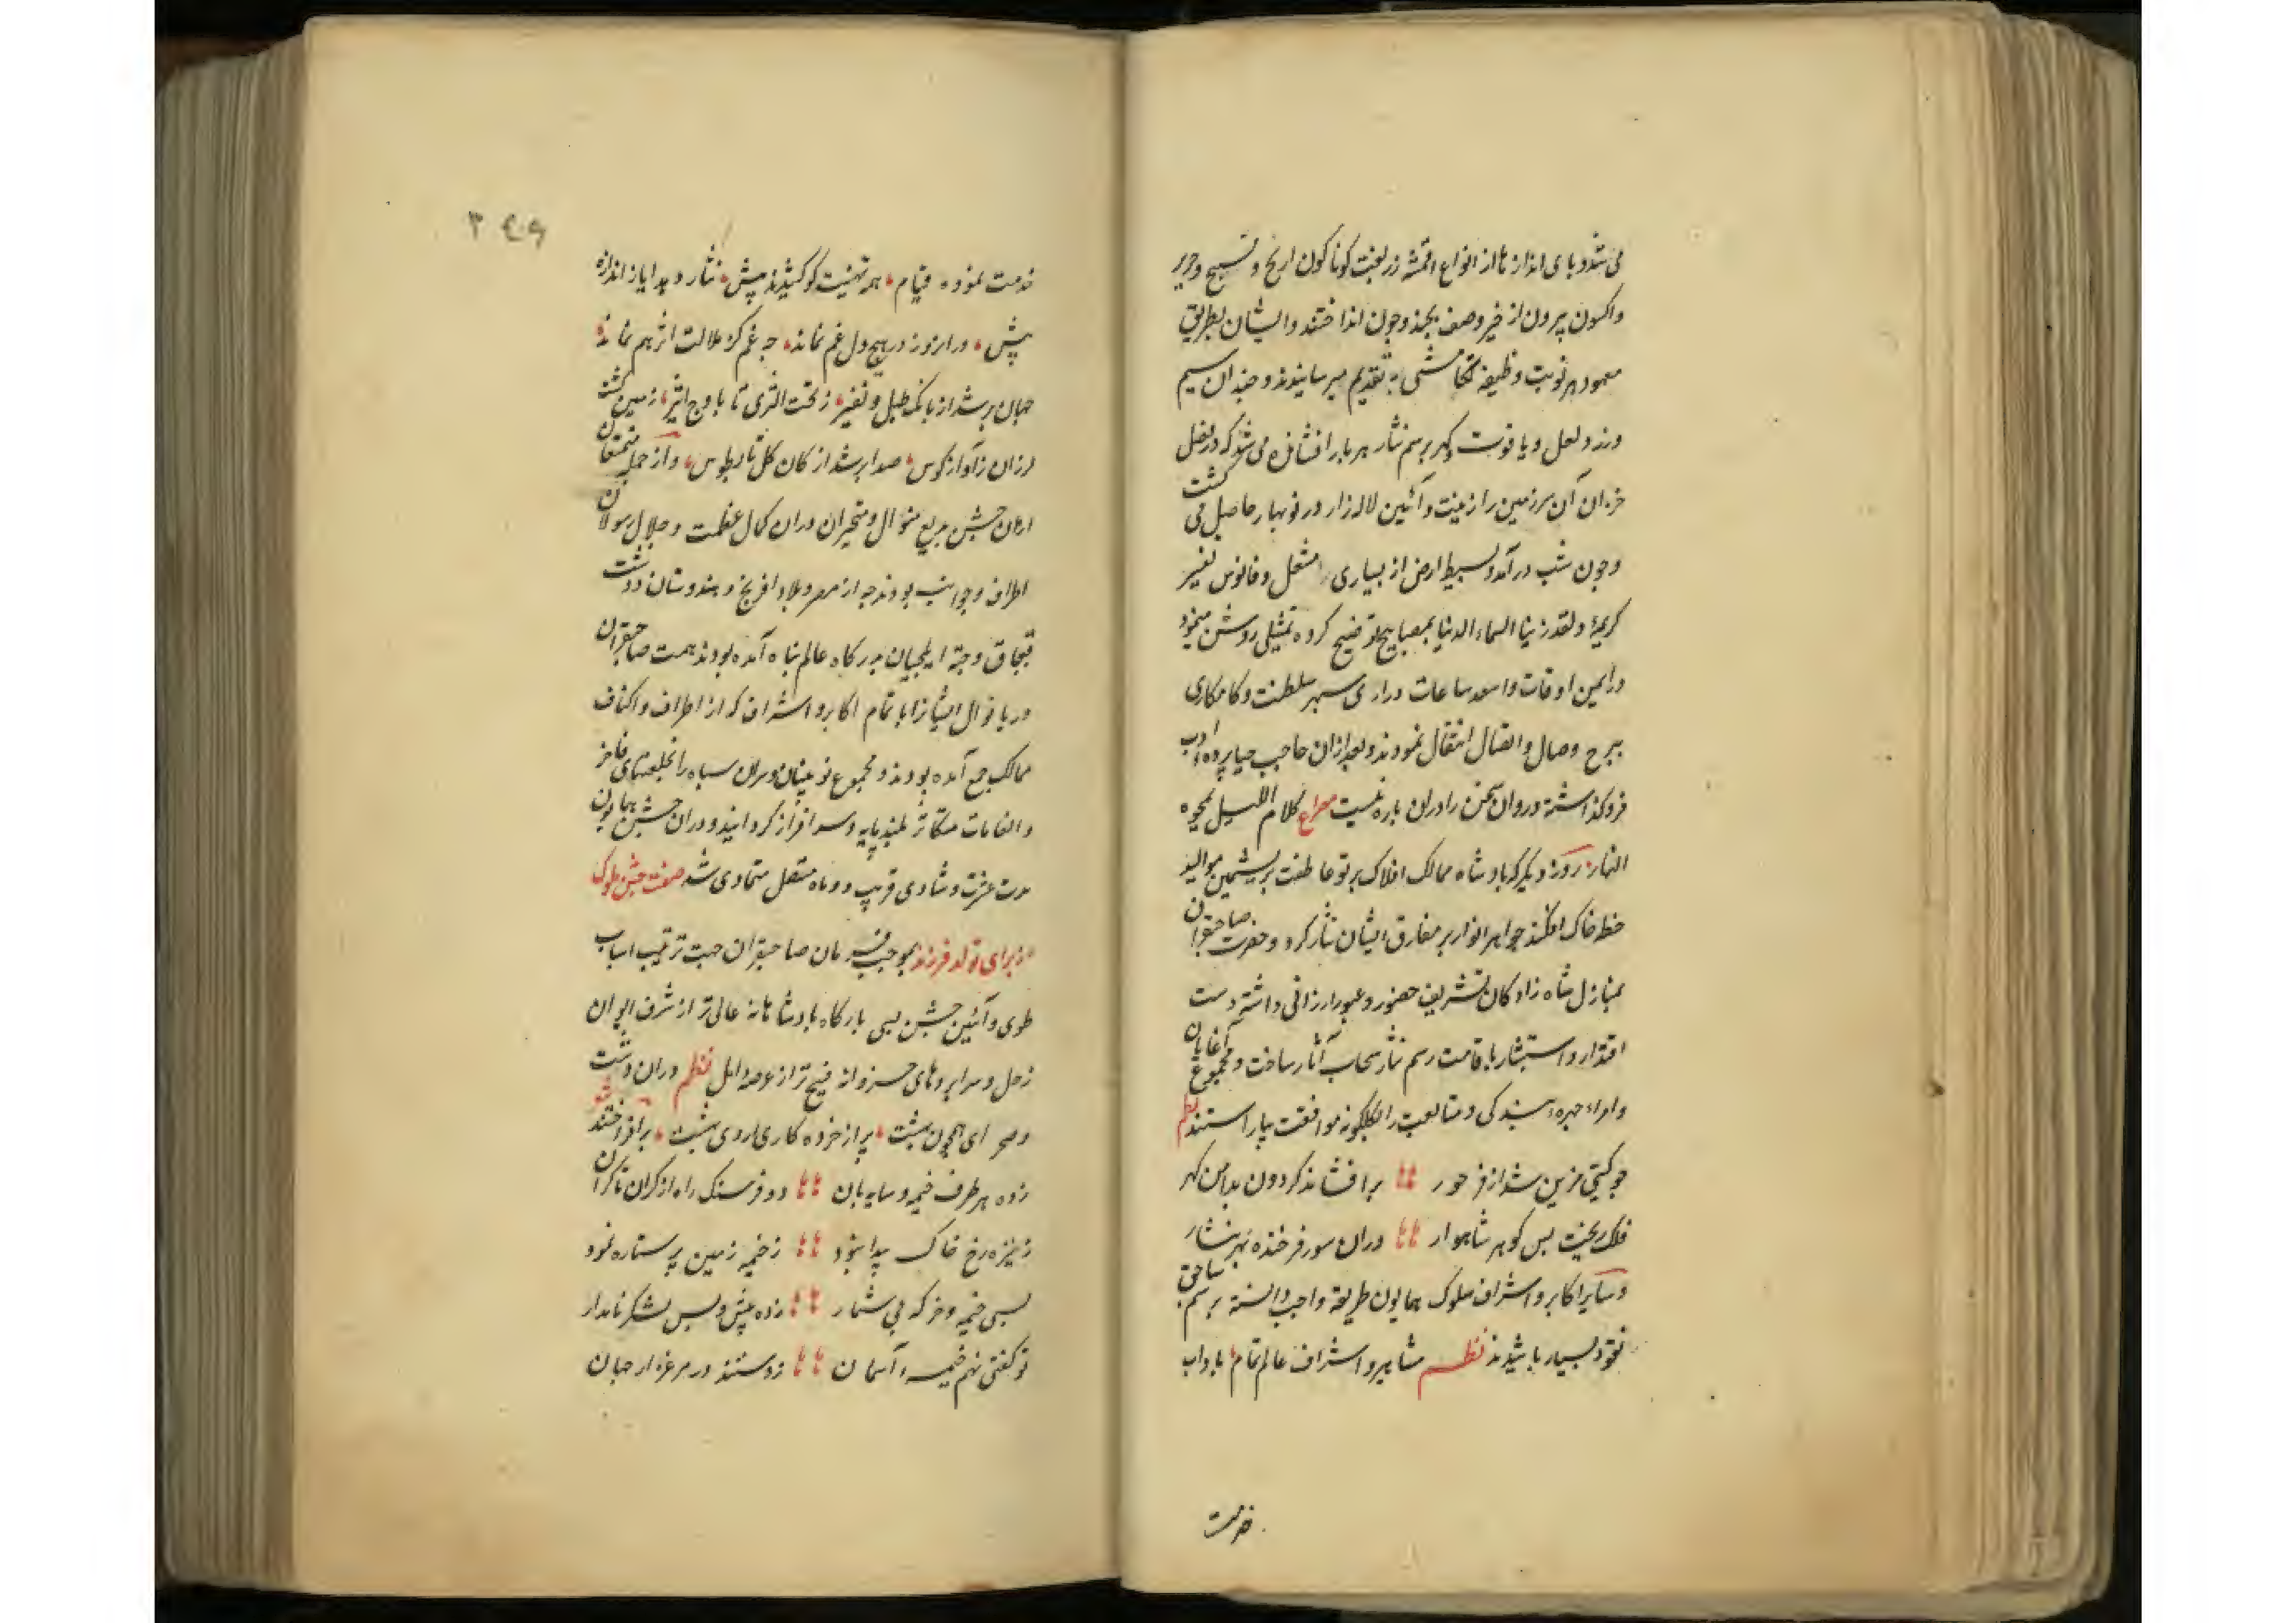 می شد و پای اندازها از انواع اقمشه زربفت کوناکون از نخ و نسیج و حریر
واکسون بیرون از خیر وصف بجند وجون انداختند وایشان بطریق
معهود هر نوبت وظیفه تقدیم میرسانیدند و چندان سیم
وزر ولعل ویاقوت وکهر برسم نثار هر بار افشانده می شد که در فصل
خزان آن سرزمین را زینت وآئین لاله زار در نوبهار حاصل می کشت
وجون شب درآمد و بسیط ارض از بسیاری مشعل وفانوس تفسیر
کریمۀ ولقد زینا السماء الدنیا بمصابیح توضیح کرده تمثیلی روشن مینمود
در ایمن اوقات واسعد ساعات دراری سپهر سلطنت وکامکاری
ببرج وصال واتصال انتقال نمودند وبعد ازان حاجب حیا پرده ادب
فروکذاشته و روان سخن را دران باره نیست مصراع کلام اللیل یمحوه
النهار روز دیکر که بادشاه ممالک افلاک پرتو عاطفت بر موالید
خطه خاک افکند جواهر انوار بر مفارق ایشان نثار کرد وحضرت صاحبقران
بمنازل شاه زادکان تشریف حضور وعبور ارزانی داشته دست
اقتدار واستبشار باقامت رسم نثار سحاب آثار ساخت ومجموع آغایان
وامراء چهره بندکی ومتابعت را بکلکونه موافقت بیاراستند نظم
جو کیتی مزین شد از فر حور برافشاند کردون بدامن کهر
فلک ریخت بس کوهر شاهوار دران سور فرخنده بهر نثار
وسایر اکابر واشراف ملوک همایون طریقه واجب دانسته برسم ساحق
نقود بسیار پاشیدند نظم مشاهیر واشراف عالم تمام باداب
خدمت
٣٤٩
خدمت نموده قیام همه تهنیت کو کشیدند پیش نثار وهدایا ز اندازه
بیش دران روز در هیچ دل غم نماند جه غم کز ملالت اثر هم نماند
جهان پر شد از بانک طبل ونفیر ز تحت الثری تا باوج اثیر زمین کشت
لرزان ز آواز کوس صدا پر شد از کان کل تا بطوس واز جمله متمتعان
ازان جشن بدیع منوال ومتحیران دران کمال عظمت وجلال رسولان
اطراف وجوانب بودند جه از مصر وبلاد افرنج وهندوستان ودشت
قبجاق وجته ایلچیان بدرکاه عالم پناه آمده بودند همت صاحبقران
دریا نوال ایشانرا با تمام اکابر واشراف که از اطراف واکناف
ممالک جمع آمده بودند ومجموع نوینان وسران سپاه را بخلعتهای فاخر
وانعامات متکاثر بلند پایه وسرافراز کردانید ودران جشن همایون
مدت عشرت وشادی قریب دو ماه متصل متمادی شد صفت جشن ملوک
از برای تولد فرزند بموجب فرمان صاحبقران جهت ترتیب اسباب
طوی وآئین جشن بسی بارکاه بادشاهانه عالی تر از شرف ایوان
زحل وسرابردهای خسروانه فسیح تر از عرصه امل نظم دران دشت
وصحرای همچون بهشت پر از خرده کاری اردی بهشت برافراختند
زده هر طرف خیمه وسایه بان دو فرسنک راه از کران تا کران
ز نیزه رخ خاک پیدا نبود ز خیمه زمین پر ستاره نمود
بسی خیمه وخرکه بی شمار زده پیش وپس لشکر نامدار
تو کفتی نهم خیمه آسمان زدستند در مرغزار جهان